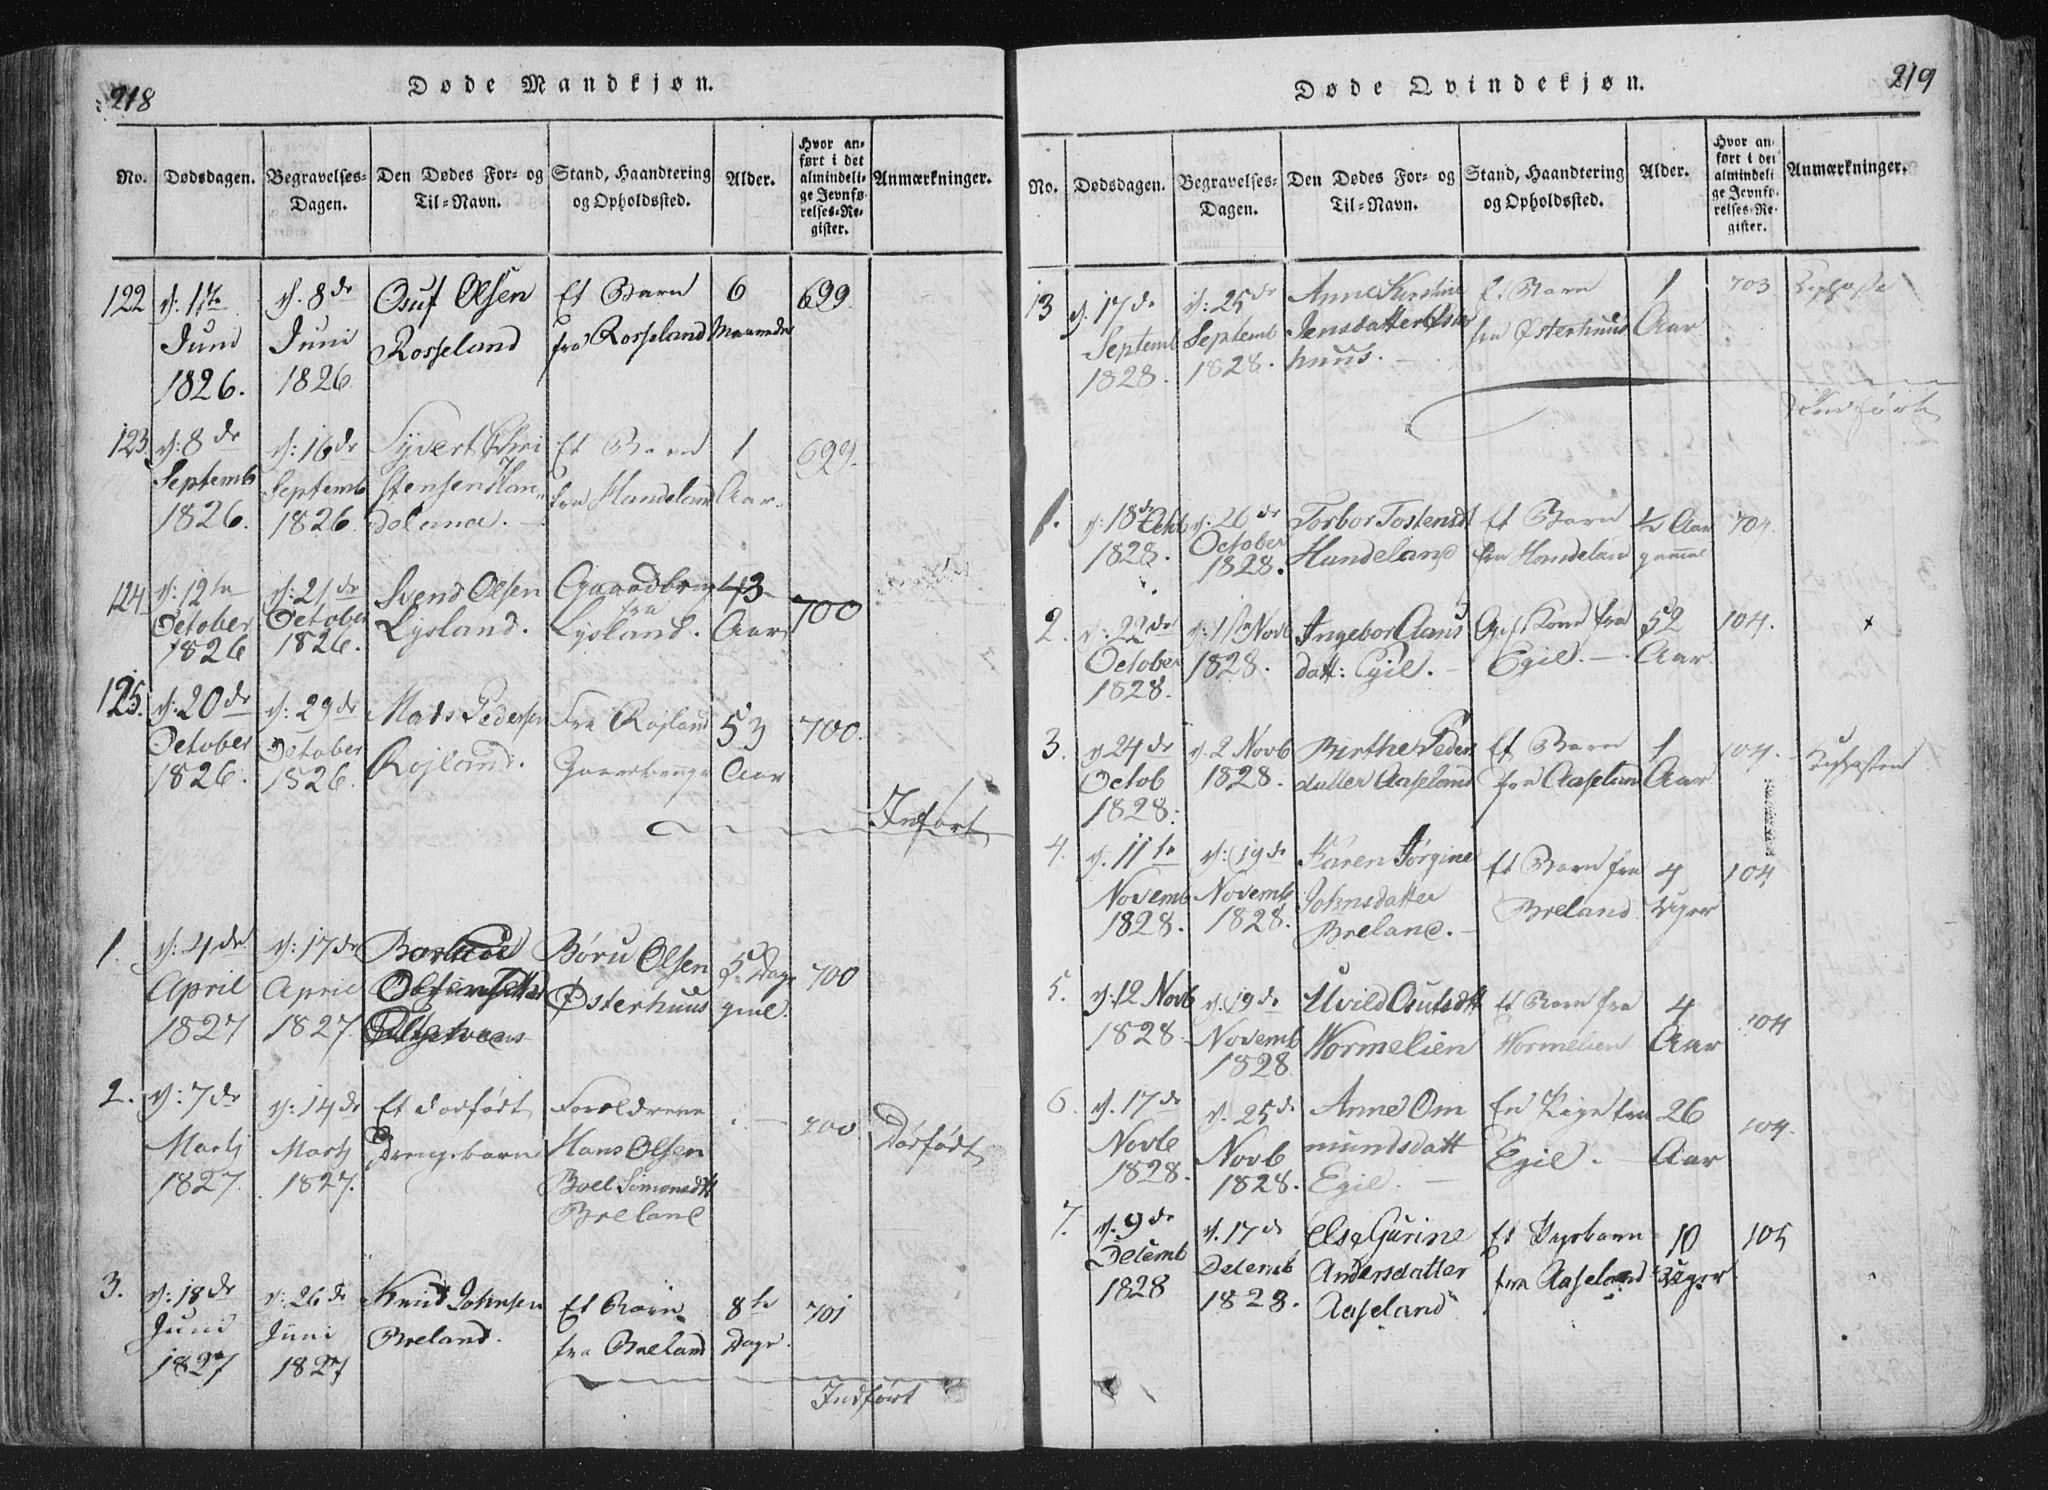 218
Døde Mandkjøn.
No.
Dødsdagen.
Begravelses-
Dagen.
Den Dødes For- og
Til-Navn.
Stand, Haandtering
og Opholdssted.
Alder.
Hvor an-
ført i det
almindeli-
ge Jevnfø-
relses-Re-
gister.
Anmærkninger.
122
d: 1ste
Juni
1826.
d. 8de
Juni
1826
Osuf Olsen
Rosseland
Et Barn
fra Rosseland
6
Maaneder
699.
123.
d: 8de
Septemb
1826.
d: 16de
Septemb
1826.
Syvert Chri
stensen Han-
deland.
Et Barn
fra Handeland
1
Aar.
699.
124.
d: 12te
October
1826
d: 21de
October
1826.
Svend Olsen
Lysland.
Gaardbrug
fra
Lysland.
43
Aar
700
125.
d: 20de
October
1826.
d: 29de
October
1826.
Mads Pedersen
Røjland.
Fra Røjland
53
Aar
700.
Indført
1.
d: 4de
April
1827
d: 17de
April
1827.
Børu Olsen
Østerhuus
5 Dage
gml.
700
2.
d: 7de
Martj
1827.
d: 14de
Martj
1827.
Et dødfødt
Drengebarn
Forældrene
Hans Olsen
Boel Simonsdtt
Breland
700
Dødfødt
3.
d: 18de
Juni
1827
d: 26de
Juni
1827
Knud Johnsen
Breland.
Et Barn
fra Breland
8te
Dage
701
Indført
219
Døde Qvindekjøn.
No.
Dødsdagen.
Begravelses-
Dagen.
Den Dødes For- og
Til-Navn.
Stand, Haandtering
og Opholdssted.
Alder.
Hvor an-
ført i det
almindeli
ge Jevnfø-
relses-Re-
gister.
Anmærkninger.
13
d. 17de
Septemb
1828.
d: 25de
Septemb
1828.
Anne Kirstine
Jensdatter Øster
huus.
Et Barn
fra Østerhuus
1
Aar
703
Indført
1.
d: 18de Octb
1828.
d. 26de
October
1828.
Torbor Tostensdt
Handeland
Et Barn
fra Handeland
1/2 Aar
gammel
704.
2.
d: 22de
October
1828.
d: 1ste Novb
1828.
Ingebor Aans
datt: Egil.
Gift Kone fra
Egil.
52
Aar.
104.
x
3.
d 24de
Octob
1828.
d. 2 Novb
1828.
Birthe Peder
datter Aaseland
Et Barn
fra Aaseland
1
Aar
104.
4.
d. 11te
Novemb
1828.
d: 19de
Novemb
1828.
Karen Jørgine
Johnsdatter
Breland.
Et Barn fra
Breland
4
Uger
104
5.
d. 12 Novb
1828
d. 19de
Novemb
1828
Uvild Osufsdtt
Wormelien
Et Barn fra
Wormelien
4
Aar
104
6.
d. 17de
Novb
1828.
d. 25de
Novb
1828.
Anne Om
mundsdatt
Egil.
En Pige fra
Egil.
26
Aar
104.
7.
d. 9de
Decemb
1828
d. 17de
Decemb
1828.
Else Gurine
Andersdatter
Aaseland
Et Pigebarn
fra Aaseland
10
Uger
105